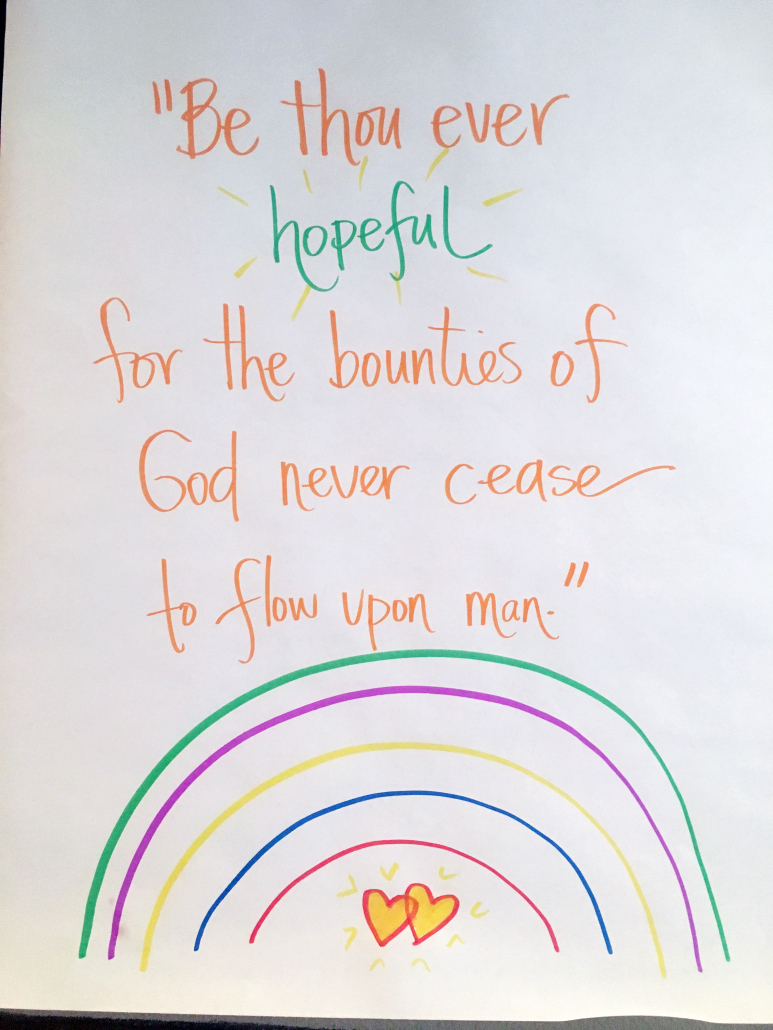 "Be thou ever
hopeful
for the bounties of
God never cease
to flow upon man."